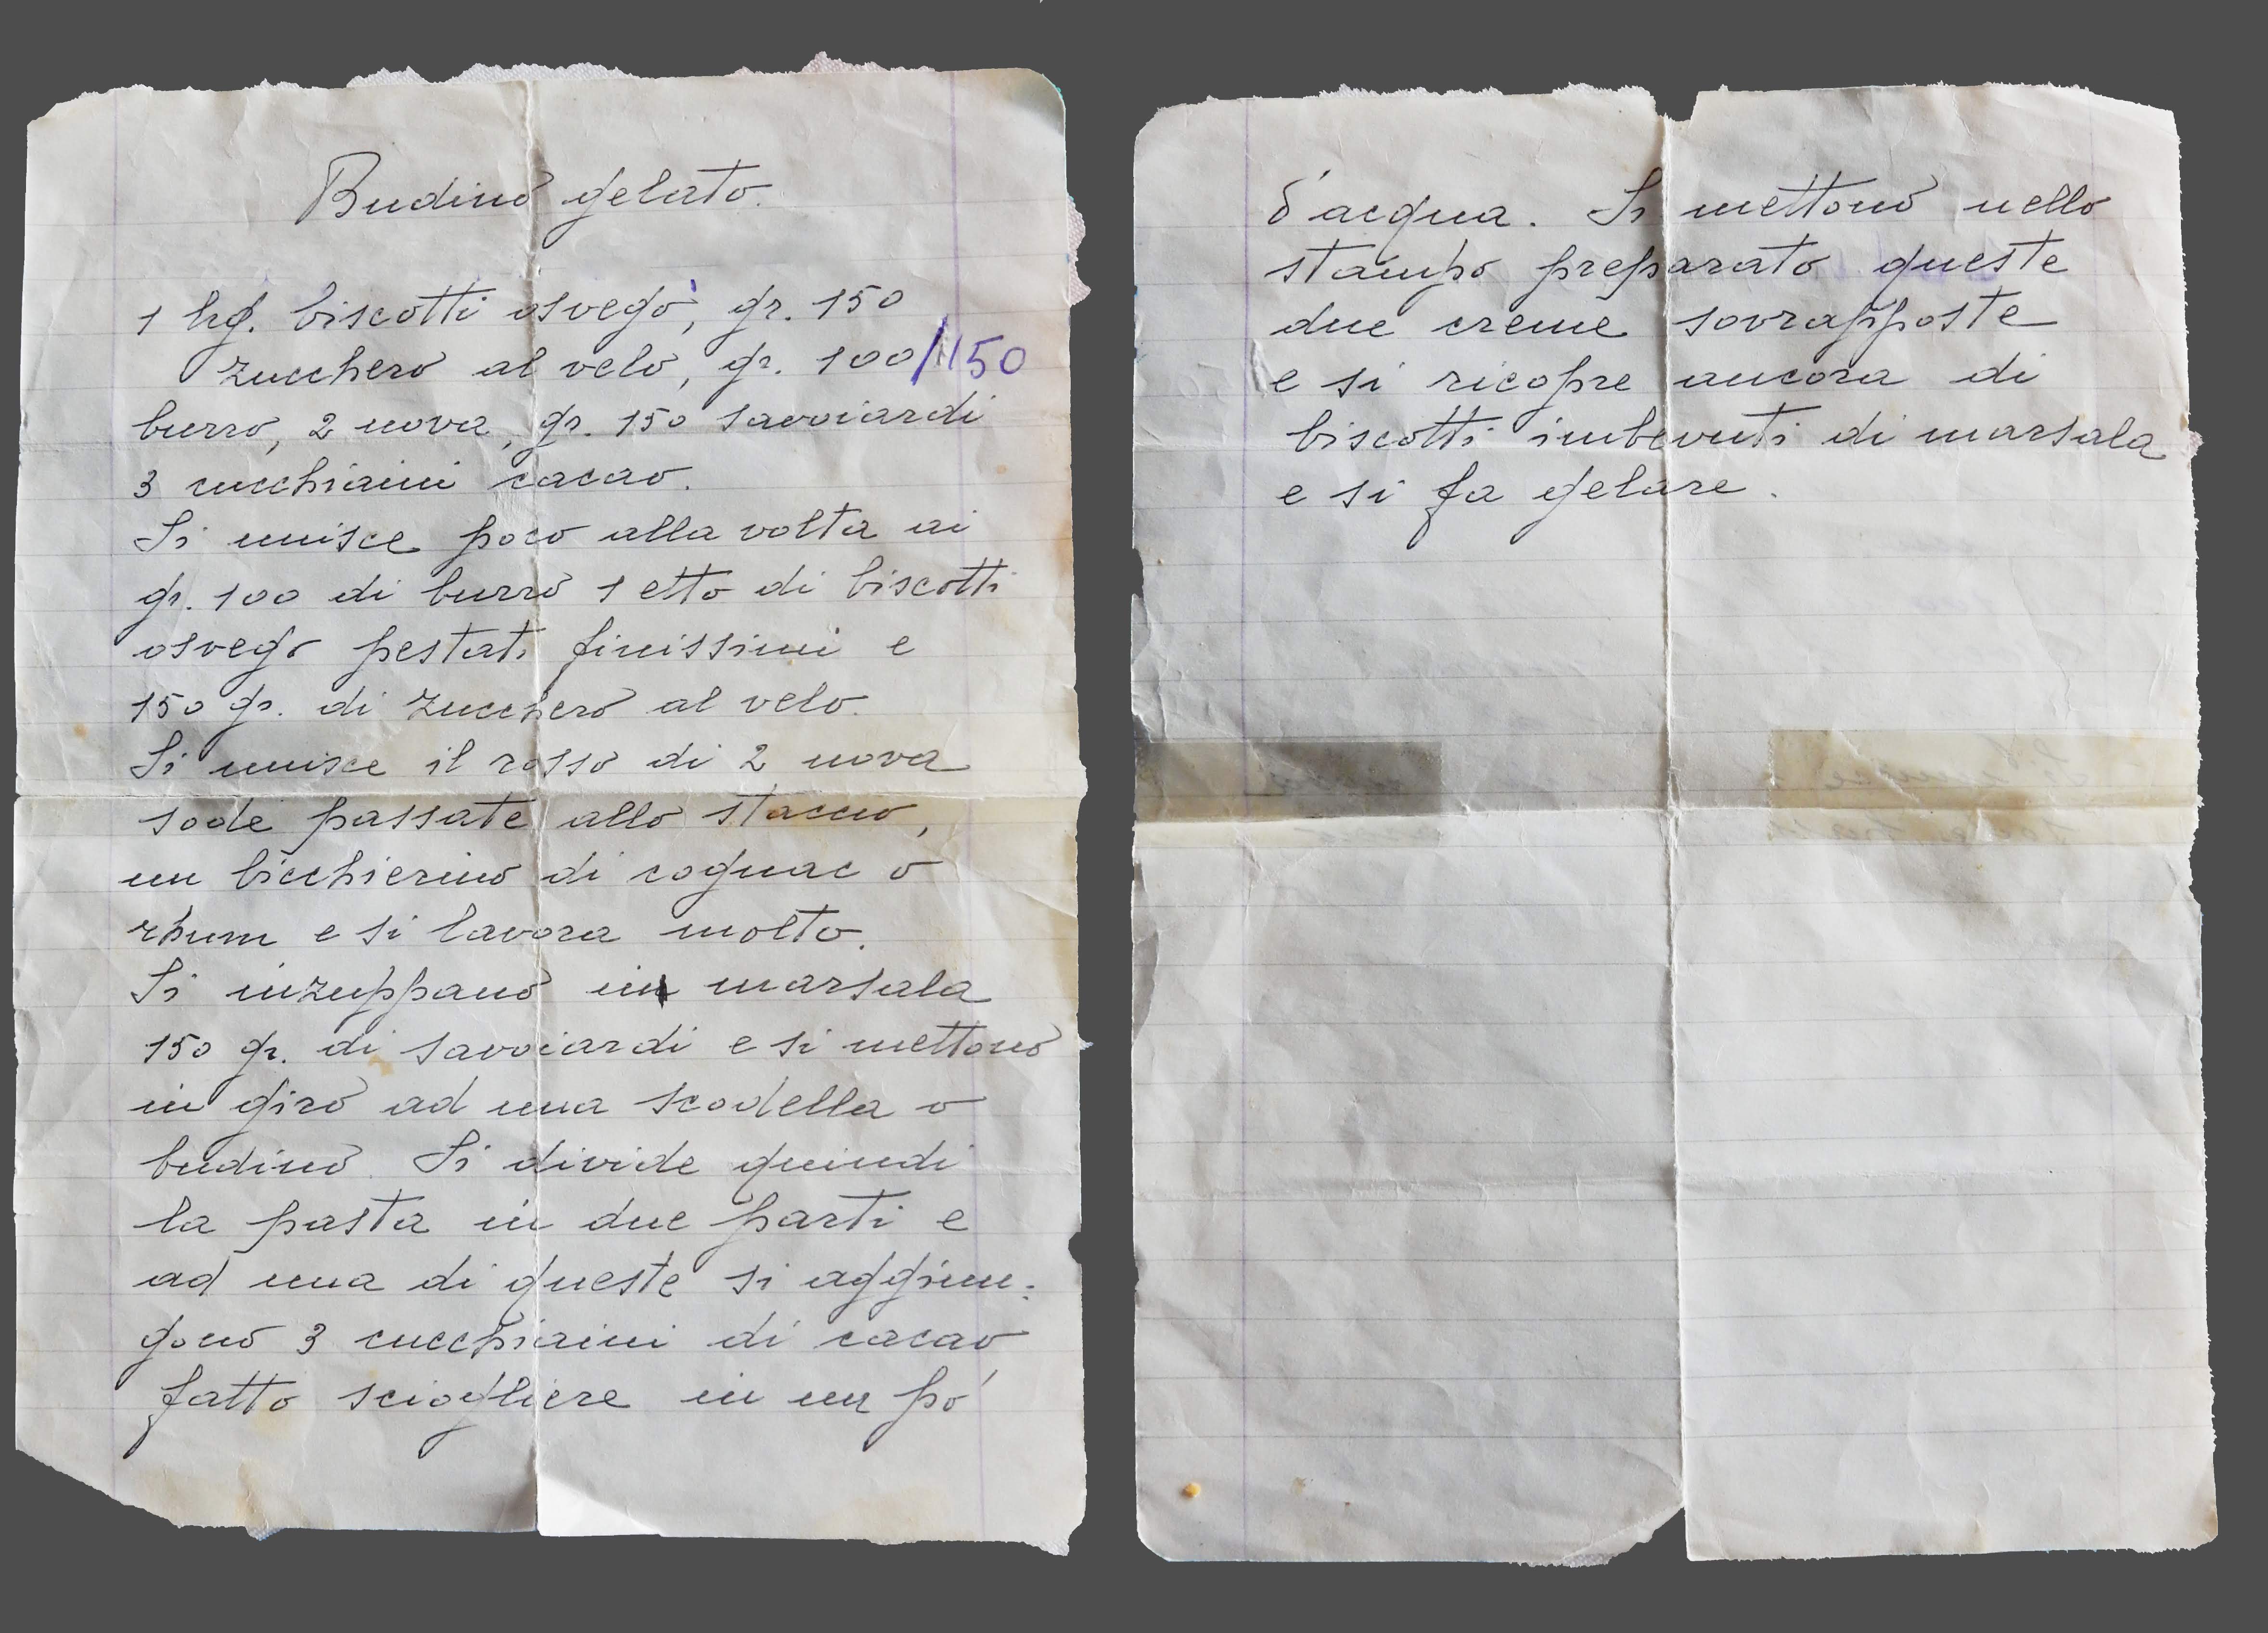 Budino gelato.
1 hg. biscotti osvego, gr. 150
zucchero al velo, gr. 100/150
burro, 2 uova, gr. 150 savoiardi
3 cucchiaini cacao.
Si unisce poco alla volta ai
gr. 100 di burro 1 etto di biscotti
osvego pestati finissimi e
150 gr. di zucchero al velo.
Si unisce il rosso di 2 uova
sode passate allo staccio,
un bicchierino di cognac o
rhum e si lavora molto.
Si inzuppano in marsala
150 gr. di savoiardi e si mettono
in giro ad una scodella o
budino. Si divide quindi
la pasta in due parti e
ad una di queste si aggiun=
gono 3 cucchiaini di cacao
fatto sciogliere in un pó
d'acqua. Si mettono nello
stampo preparato queste
due creme sovrapposte
e si ricopre ancora di
biscotti imbevuti di marsala
e si fa gelare.